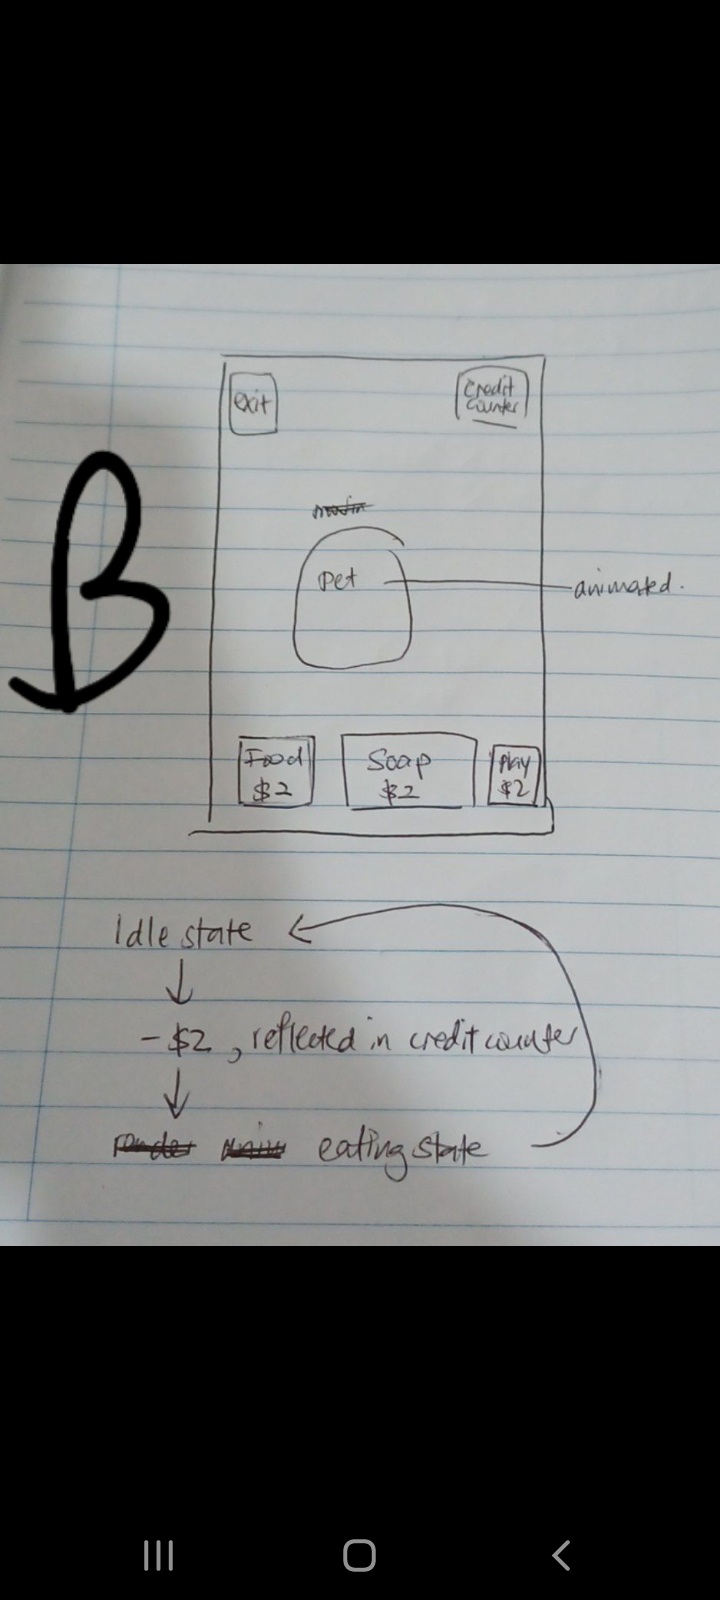 exit
Credit
Counter
B
Pet
animated.
Food
$2
Soap
$2
Play
$2
Idle state
-$2, reflected in credit counter
eating state